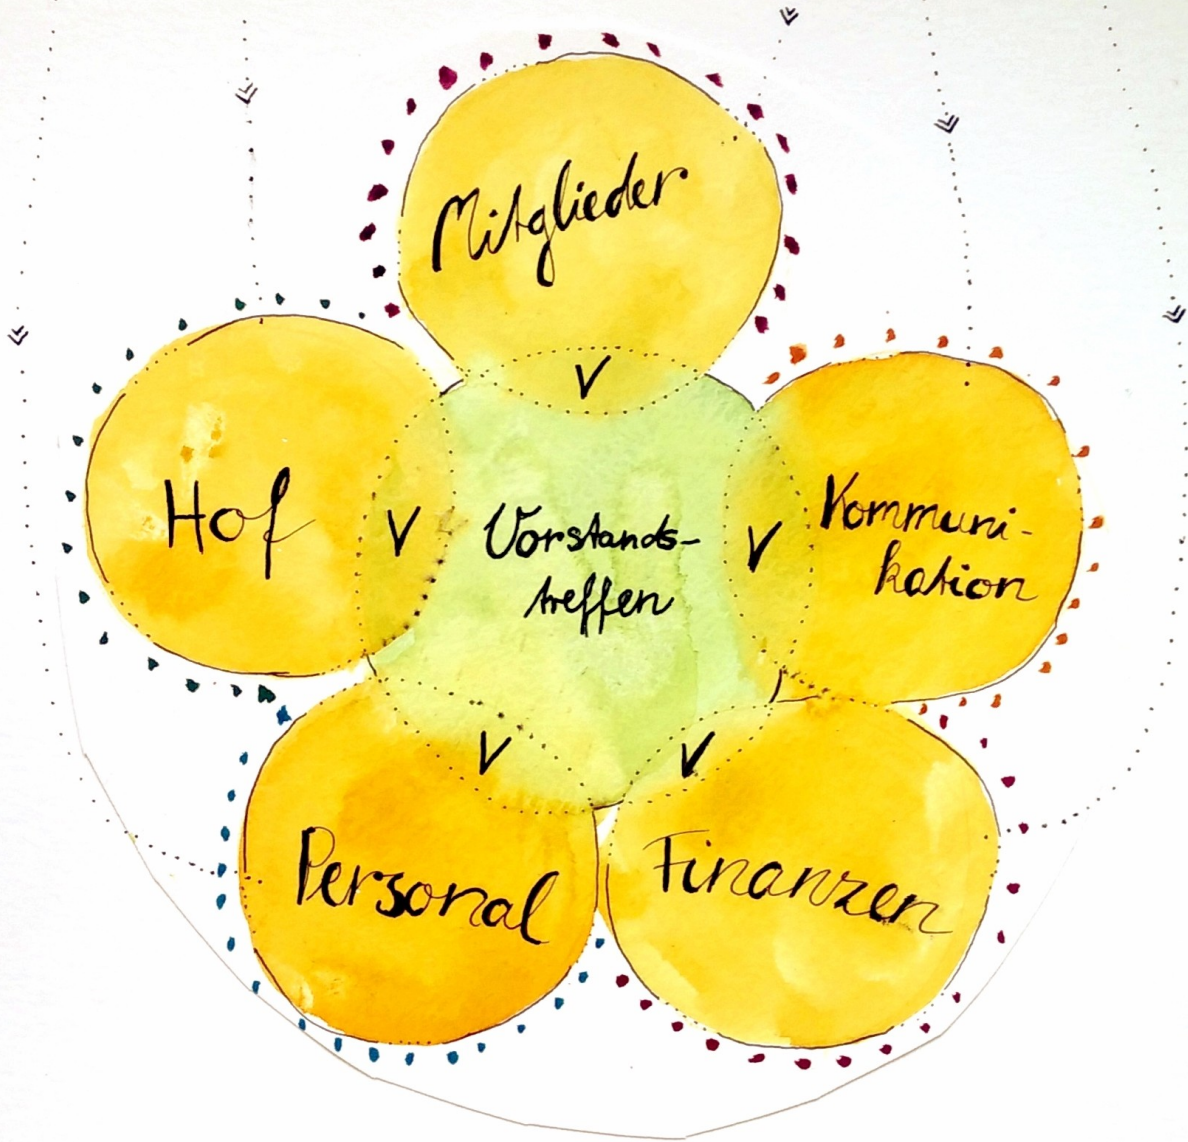 Mitglieder
V
Hof
V
Vorstands-
treffen
V
Kommuni-
kation
V
V
Personal
Finanzen